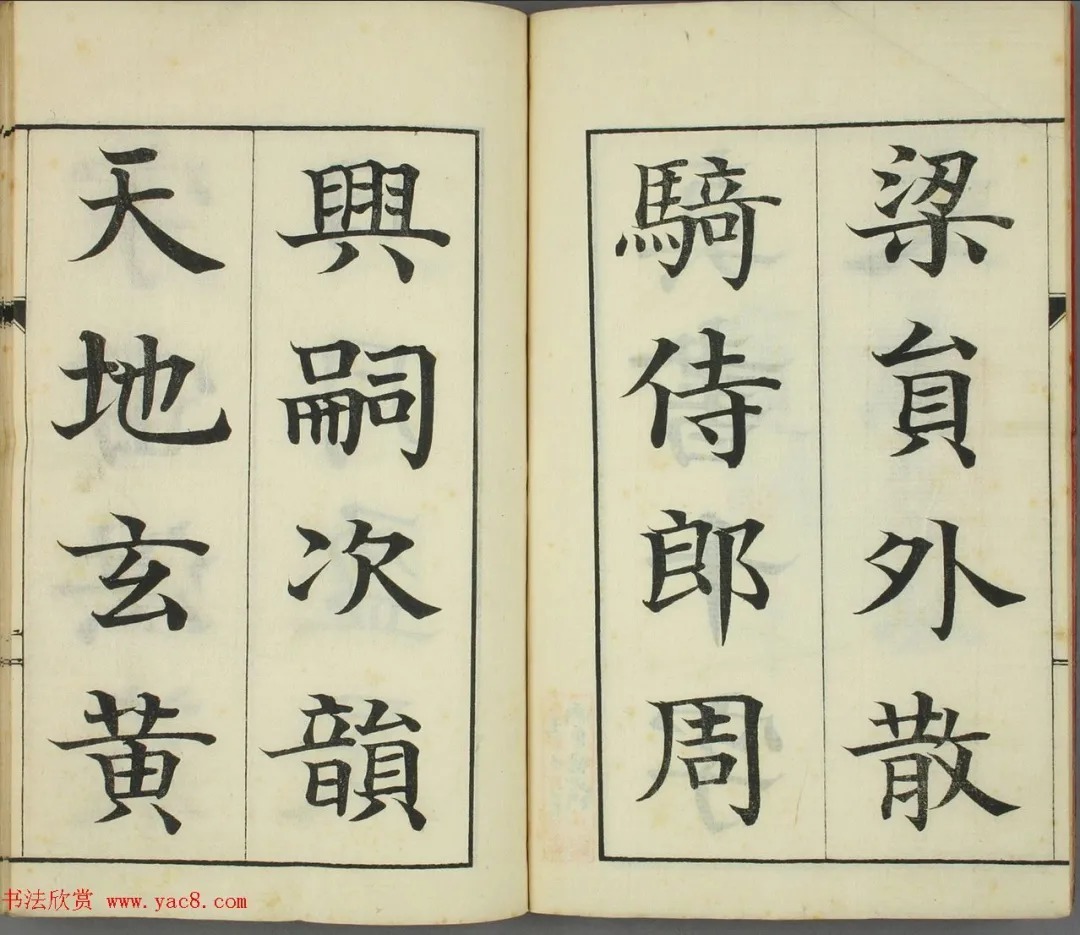 梁員外散
騎侍郎周
興嗣次韻
天地玄黃
书法欣赏 www.yac8.com